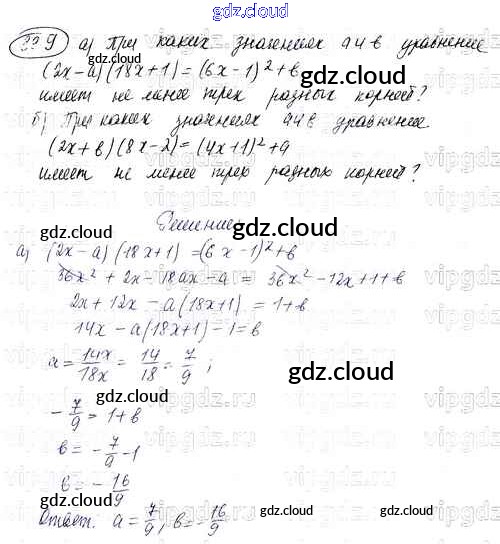 gdz.cloud
339 а) При каких значениях а и в уравнение
(2x-a)(18x+1)=(6x-1)²+в
gdz.cloud
имеет не менее трех разных корней?
б) При каких значениях а и в уравнение
gdz.cloud
(2x+в)(8x-2)=(4x+1)²+а
имеет не менее трех разных корней?
gdz.cloud
Решение:
gdz.cloud
а) (2x-a)(18x+1)=(6x-1)²+в
36x²+2x-18ax-a=36x²-12x+1+в
2x+12x-a(18x+1)=1+в
gdz.cloud
14x-a(18x+1)-1=в
a=14x/18x=14/18=7/9;
gdz.cloud
-7/9=1+в
gdz.cloud
в=-7/9-1
в=-16/9
gdz.cloud
Ответ: a=7/9, в=-16/9
gdz.cloud